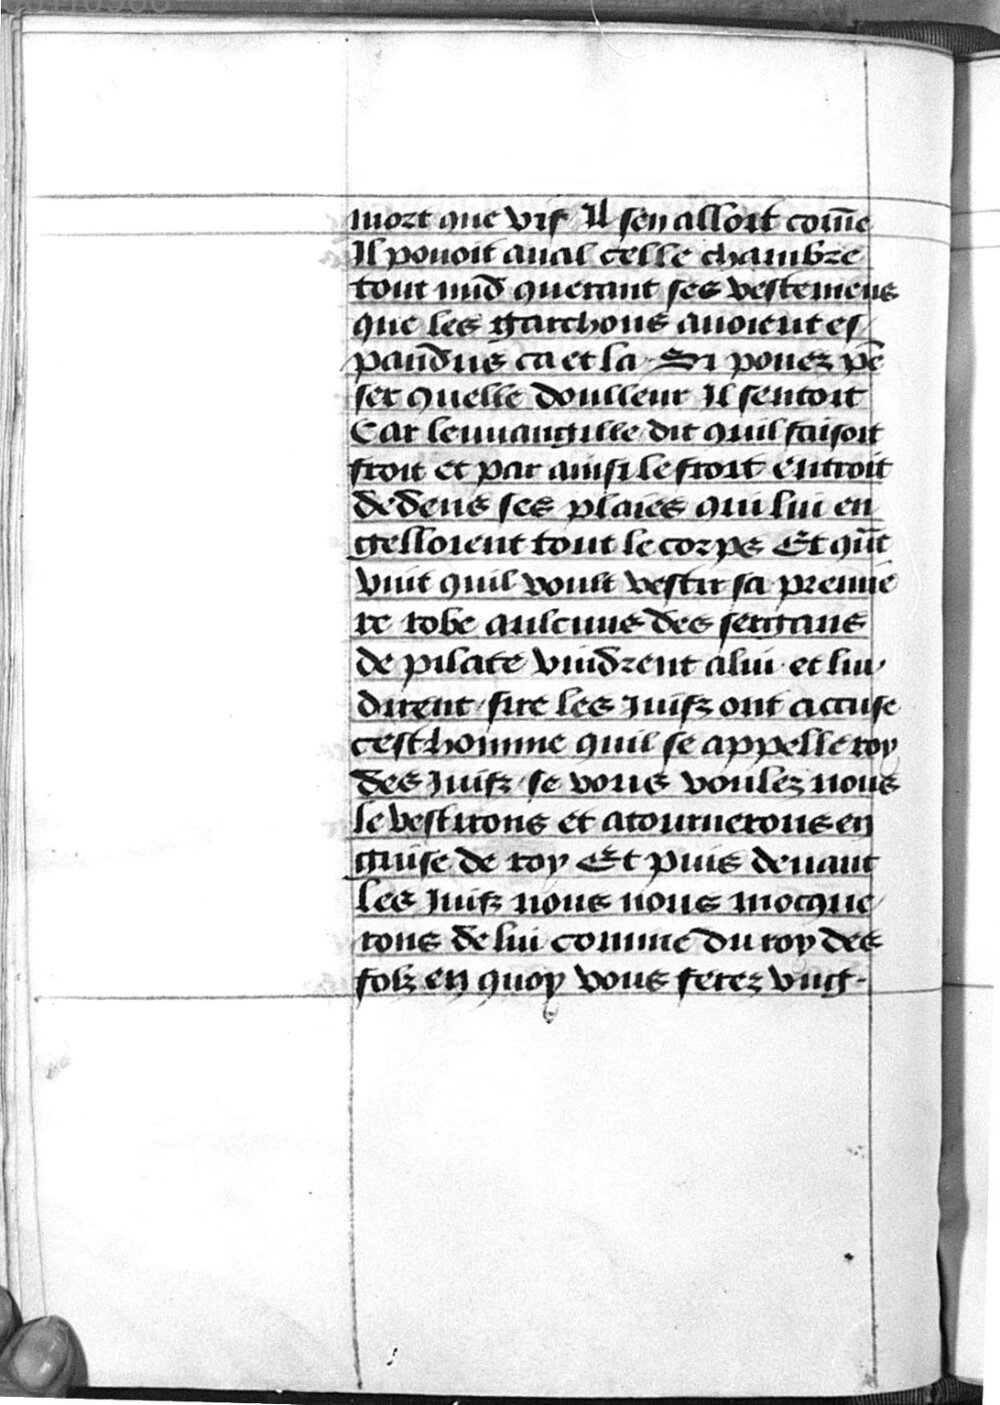 mort que vif Il sen alloit com̄e
Il pouoit aual celle chambre
tout nud querant ses vestemens
que les garchons auoient es
pandus ca et la Si pouez pē
ser quelle doulleur Il sentoit
Car leuuangille dit quil faisoit
froit et par ainsi le froit entroit
dedens ses plaies qui lui en
gelloient tout le corps Et qūt
vint quil voult vestir sa premie
re robe aulcuns des sergans
de pilate vindrent a lui et lui
dirent sire les Juifz ont accuse
cest homme quil se appelle roy
des Juifz se vous voulez nous
le vestirons et atournerons en
guise de roy Et puis deuant
les Juifz nous nous mocque
rons de lui comme du roy des
folz en quoy vous ferez vng